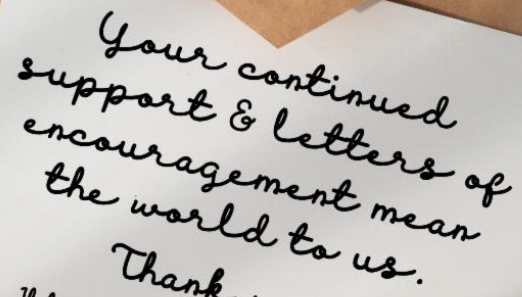 Your continued
support & letters of
encouragement mean
the world to us.
Thank